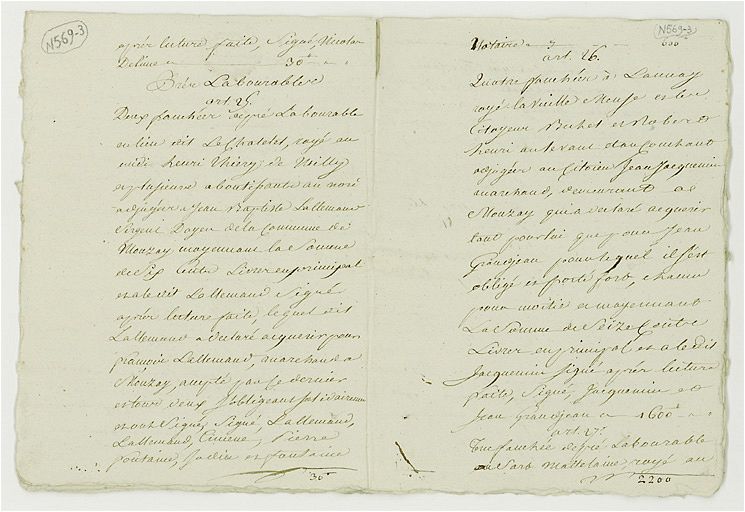 N569-3
après lecture faite, Signé, Nicolas
30
Prés Labourables
art. 25.
Deux fauchées de pré Labourable
en lieu dit Le Chatelet, royé au
midi henri Thiery, de Neilly
aboutissante au nord
adjugée a Jean Baptiste Lallemand
Sergent Doyen de la Commune de
Mouzay moyennant la Somme
de Six Cents Livres en principal
et a le dit Lallemand Signé
après lecture faite, lequel dit
Lallemand a declaré acquerir pour
francois Lallemand, marchand a
Mouzay, accepté par ce dernier
et tous deux S'obligeant solidairement
et ont Signés, Signé, Lallemand,
Lallemand, pierre
fontaine, et fontaine
30
N569-3
Notaire 600
art. 26.
Quatre fauchées a Launay
royé la vieille Meuse et les
Citoyens Buchet et Robert
henri au levant et au Couchant
adjugées au Citoien Jean Jacquemin
marchand, demeurant a
Mouzay qui a declaré acquerir
tant pour lui que pour Jean
Grandjean pour lequel il s'est
obligé et porté fort, chacun
pour moitié et moyennant
La Somme de Seize Cents
Livres en principal et a le dit
Jacquemin Signé après lecture
faite, Signé, Jacquemin et
Jean grandjean 1600
art. 27.
Une fauchée de pré Labourable
royé au
2200